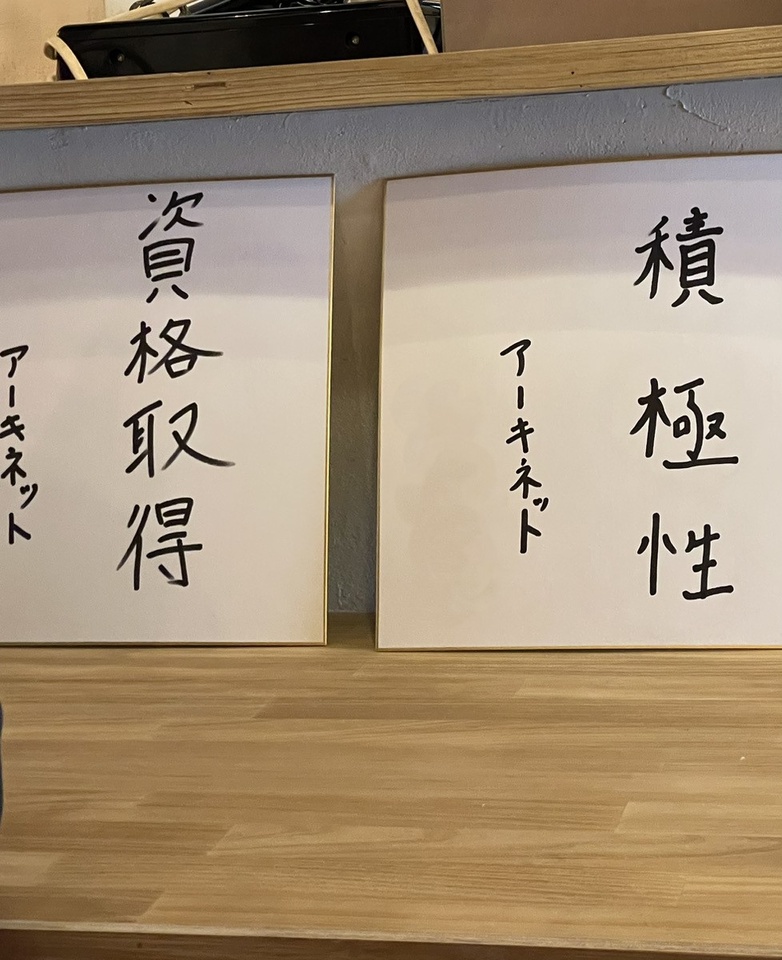 積極性
アーキネット
資格取得
アーキネット